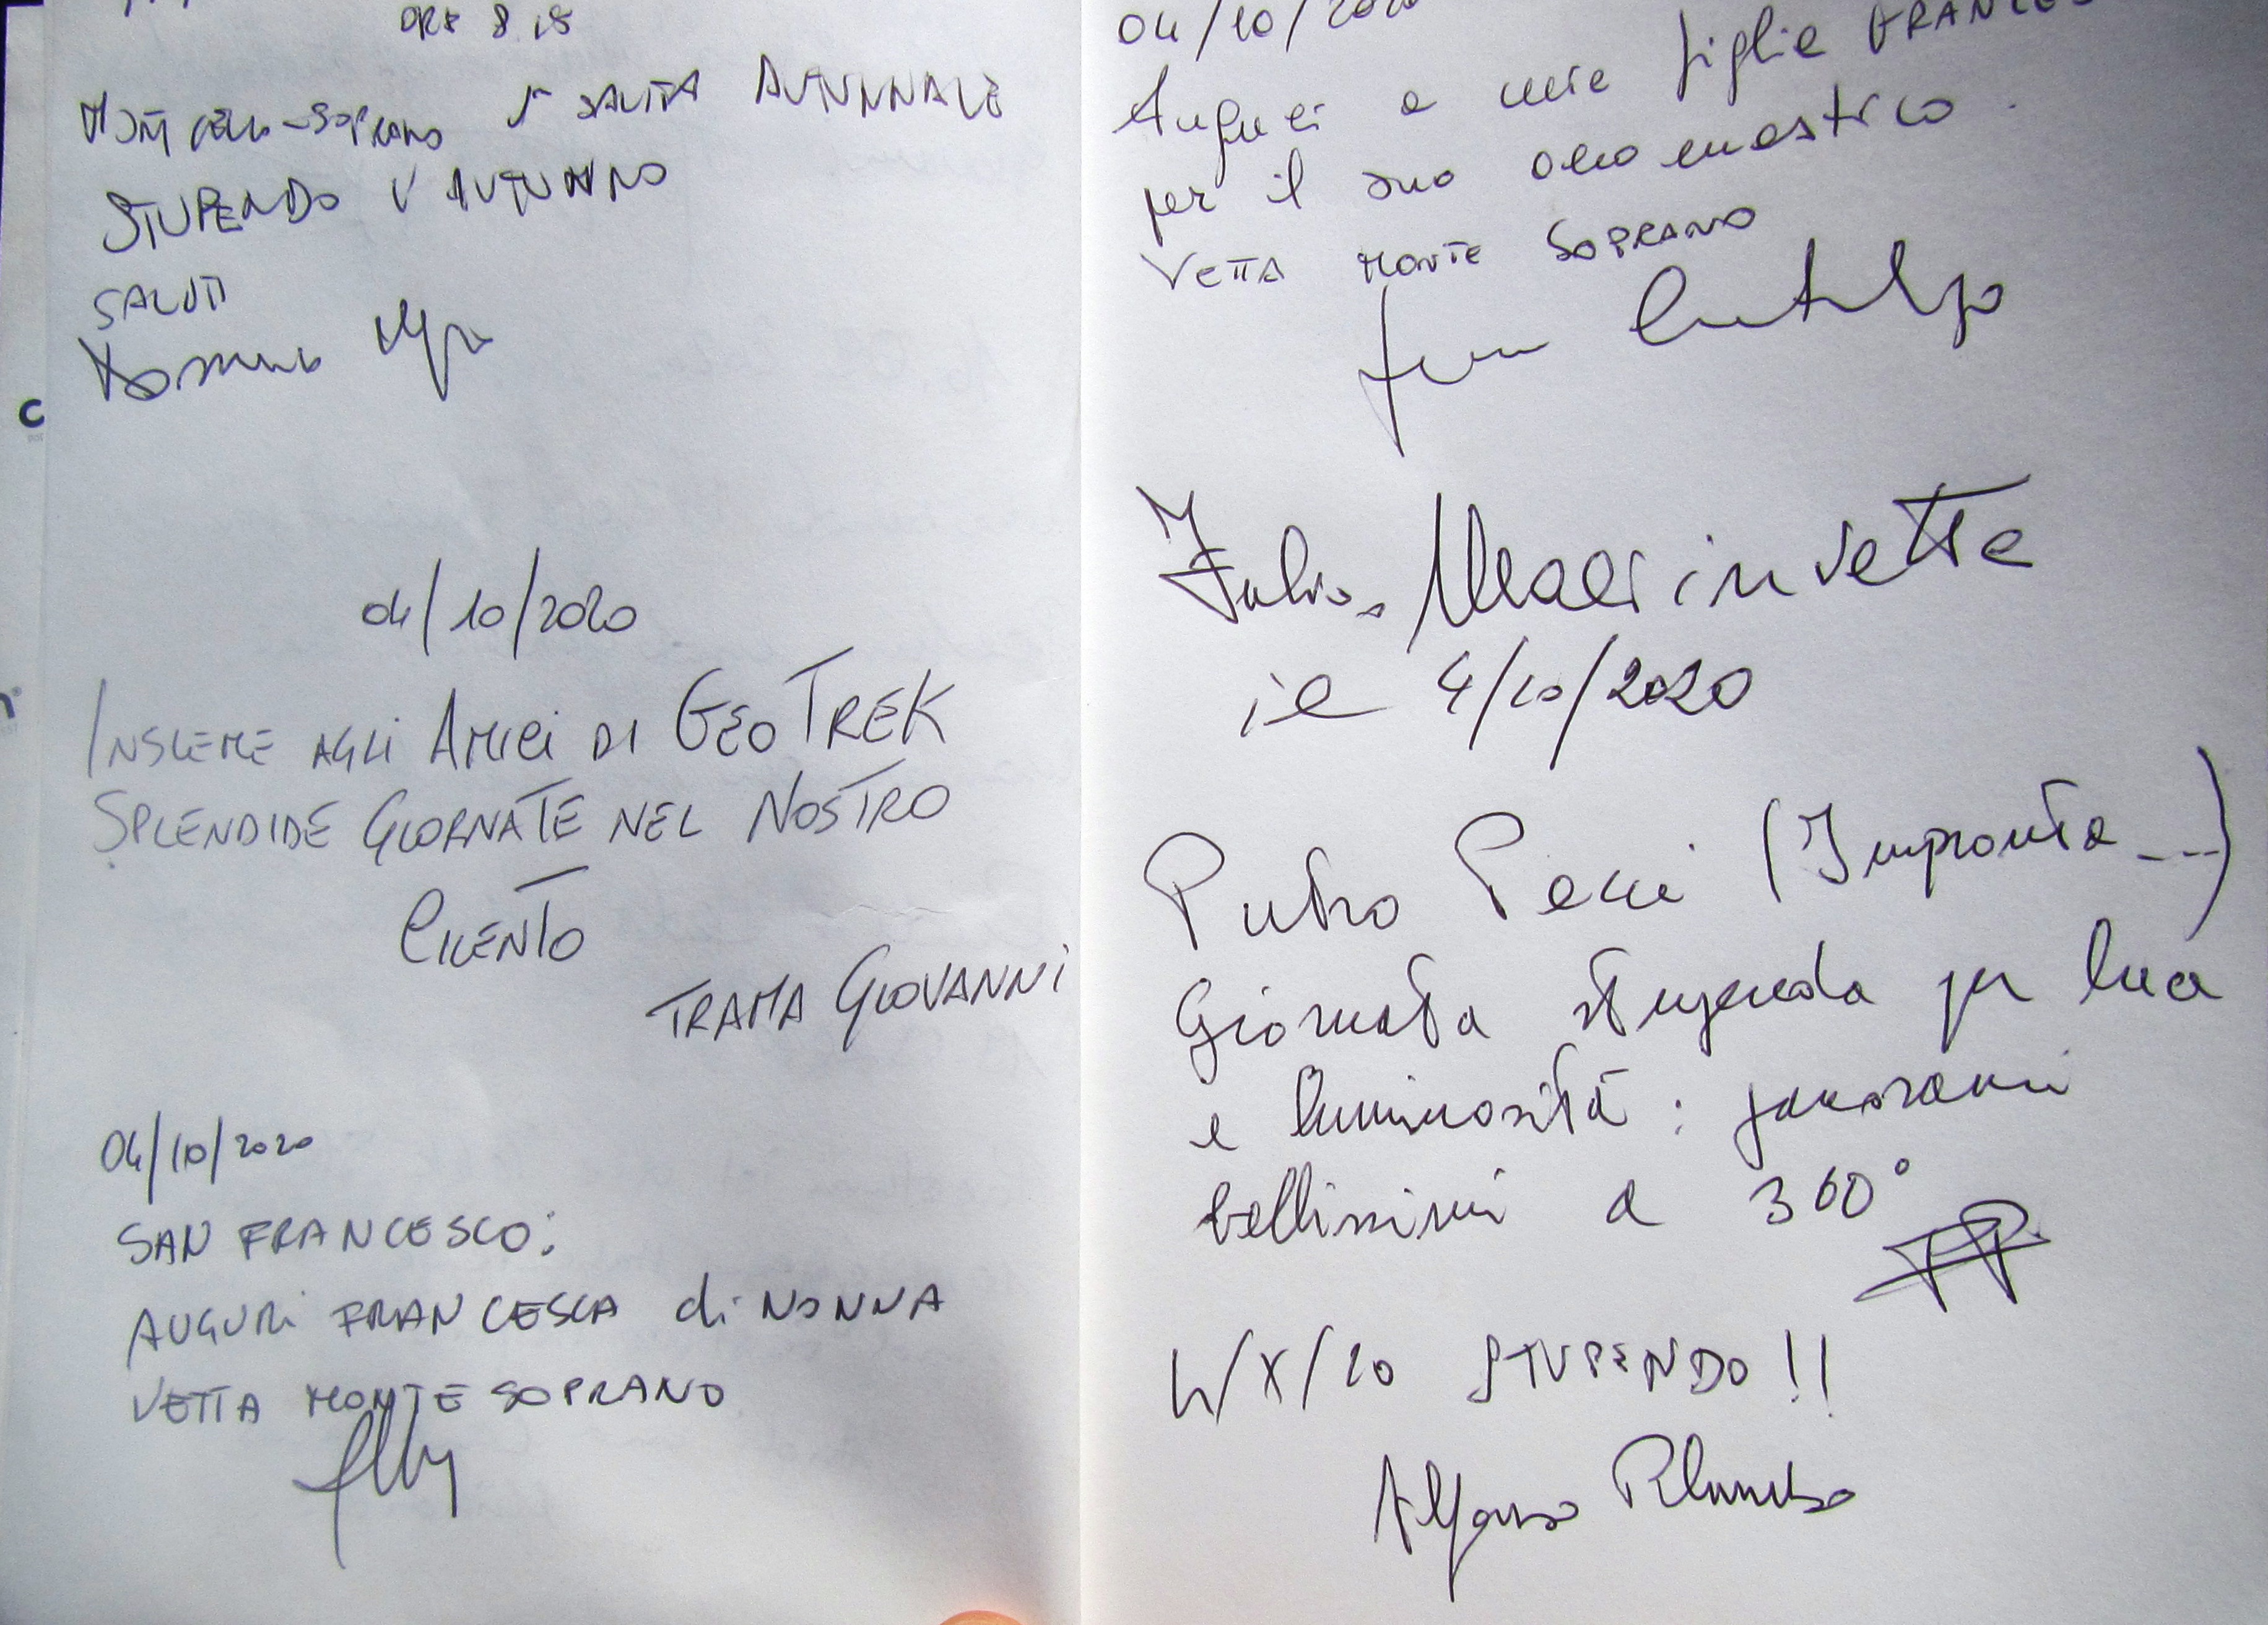 ORE 8.15
SOPRANO 1ª SALITA AUTUNNALE
STUPENDO L'AUTUNNO
SALUTI
04/10/2020
INSIEME AGLI AMICI DI GEOTREK
SPLENDIDE GIORNATE NEL NOSTRO
CILENTO
TRAMA GIOVANNI
04/10/2020
SAN FRANCESCO:
AUGURI FRANCESCA di NONNA
VETTA MONTE SOPRANO
04/10/2020
Auguri a mia figlia
per il suo onomastico.
VETTA MONTE SOPRANO
in vetta
il 4/10/2020
Pietro Pecci (Impronta ---)
Giornata stupenda per luce
e luminosità: panorami
bellissimi a 360°
4/X/20 STUPENDO!!
Alfonso